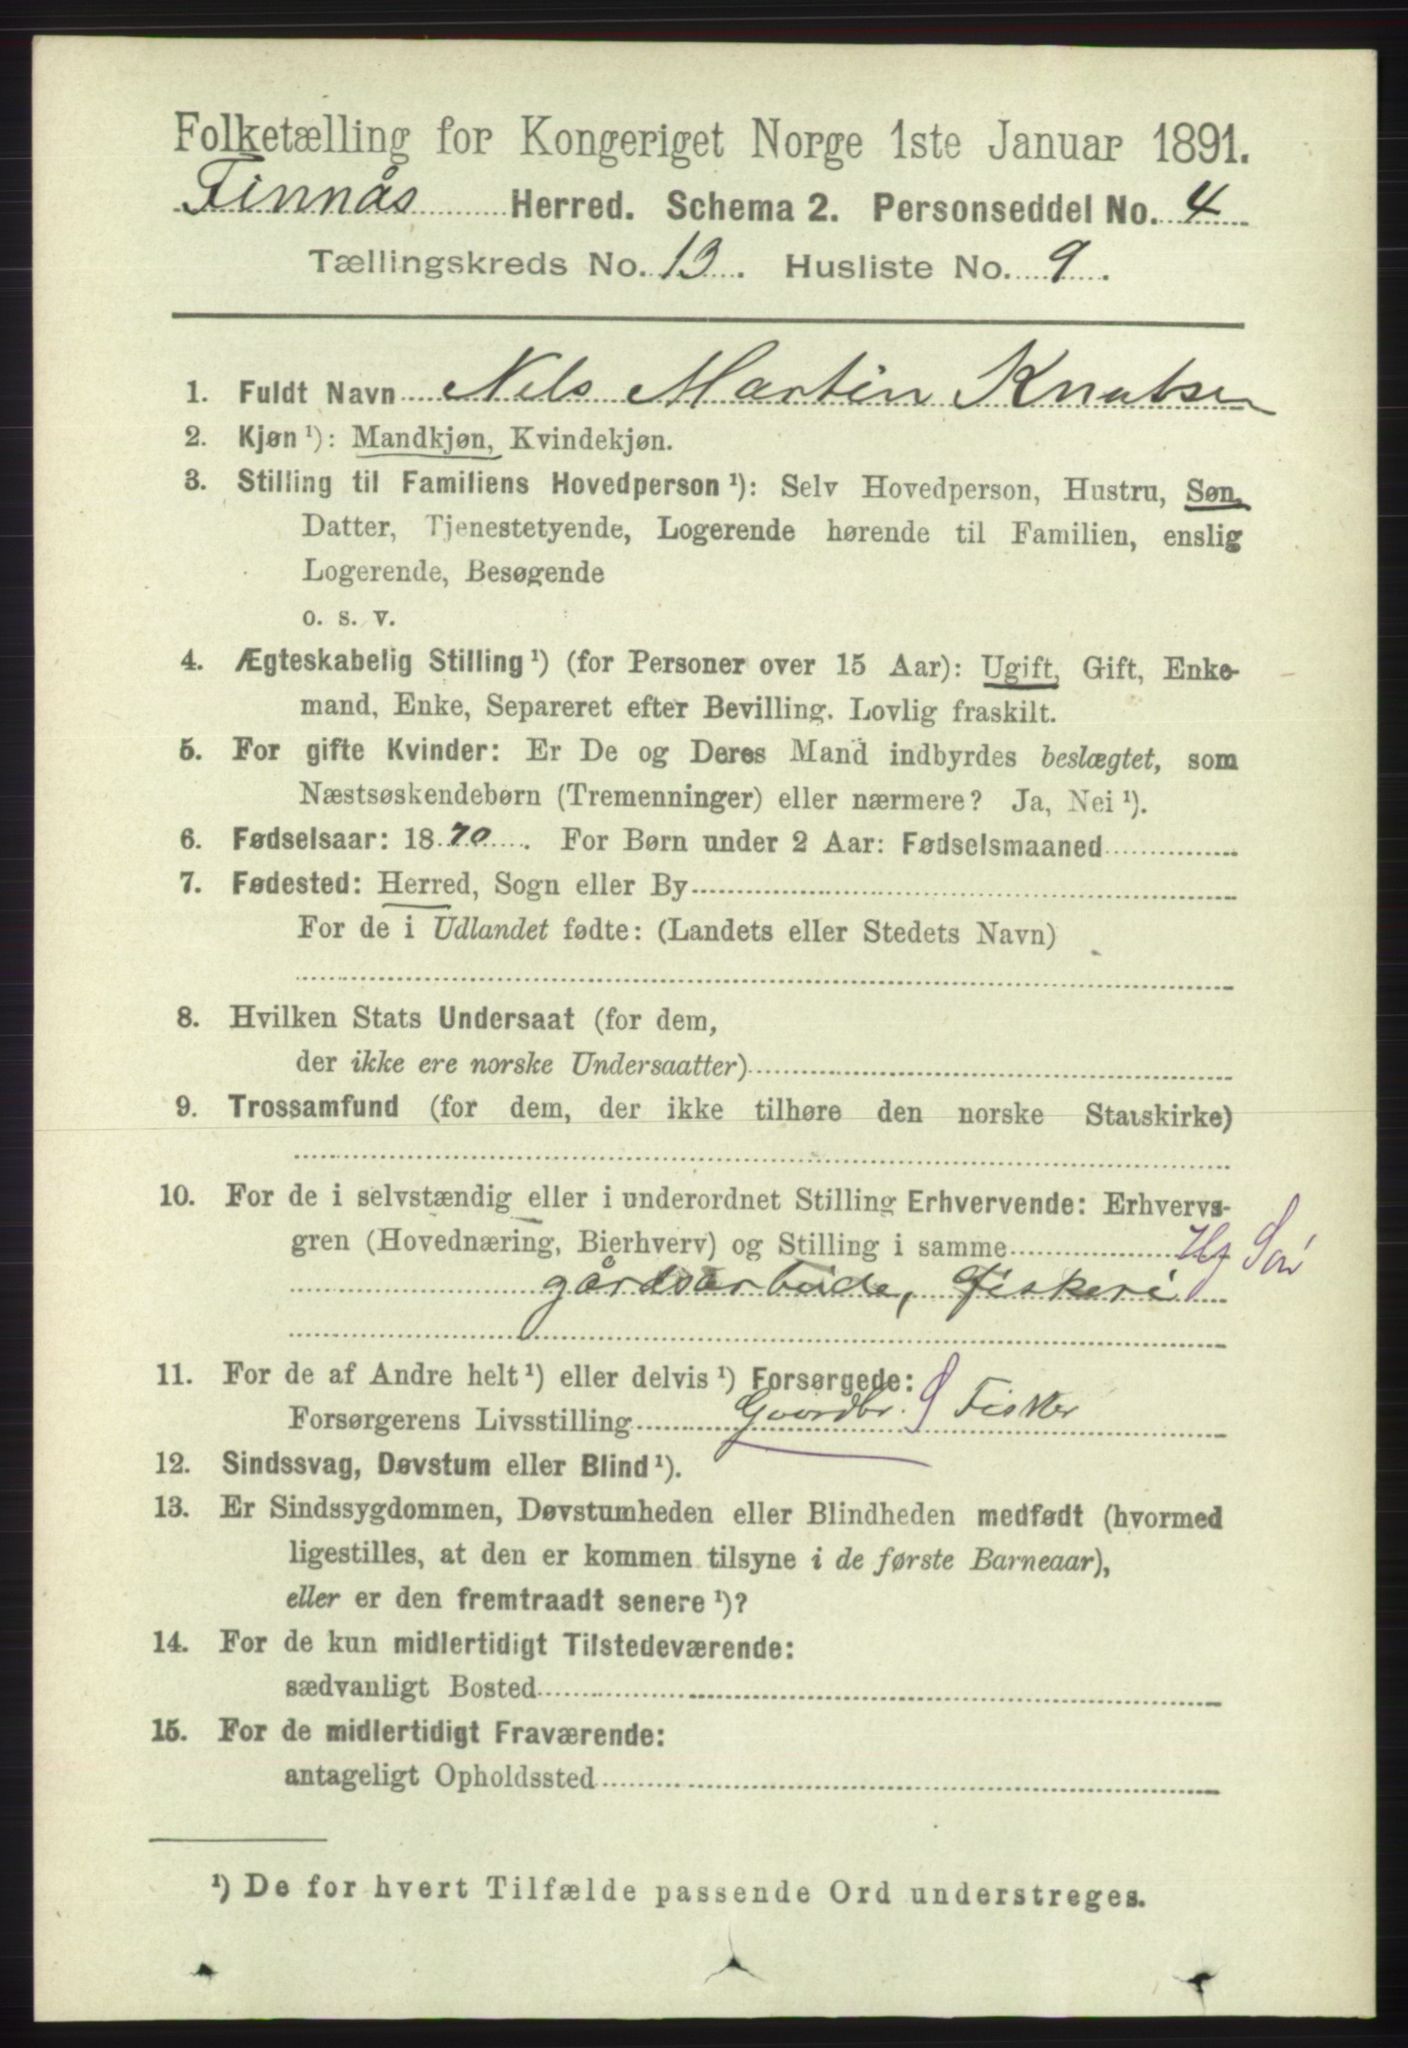 Folketælling for Kongeriget Norge 1ste Januar 1891.
Finnås Herred. Schema 2. Personseddel No. 4
Tællingskreds No. 13. Husliste No. 9.
1. Fuldt Navn Nels Martin Knutsen
2. Kjøn ¹): Mandkjøn, Kvindekjøn.
3. Stilling til Familiens Hovedperson ¹): Selv Hovedperson, Hustru, Søn,
Datter, Tjenestetyende, Logerende hørende til Familien, enslig
Logerende, Besøgende
o. s. v.
4. Ægteskabelig Stilling ¹) (for Personer over 15 Aar): Ugift, Gift, Enke-
mand, Enke, Separeret efter Bevilling. Lovlig fraskilt.
5. For gifte Kvinder: Er De og Deres Mand indbyrdes beslægtet, som
Næstsøskendebørn (Tremenninger) eller nærmere? Ja, Nei ¹).
6. Fødselsaar: 1870. For Børn under 2 Aar: Fødselsmaaned
7. Fødested: Herred, Sogn eller By
For de i Udlandet fødte: (Landets eller Stedets Navn)
8. Hvilken Stats Undersaat (for dem,
der ikke ere norske Undersaatter)
9. Trossamfund (for dem, der ikke tilhøre den norske Statskirke)
10. For de i selvstændig eller i underordnet Stilling Erhvervende: Erhvervs-
gren (Hovednæring, Bierhverv) og Stilling i samme
gårdsarbeide, fiskeri
11. For de af Andre helt ¹) eller delvis ¹) Forsørgede:
Forsørgerens Livsstilling Gaardbr. S Fisker
12. Sindssvag, Døvstum eller Blind ¹).
13. Er Sindssygdommen, Døvstumheden eller Blindheden medfødt (hvormed
ligestilles, at den er kommen tilsyne i de første Barneaar),
eller er den fremtraadt senere ¹)?
14. For de kun midlertidigt Tilstedeværende:
sædvanligt Bosted
15. For de midlertidigt Fraværende:
antageligt Opholdssted
¹) De for hvert Tilfælde passende Ord understreges.